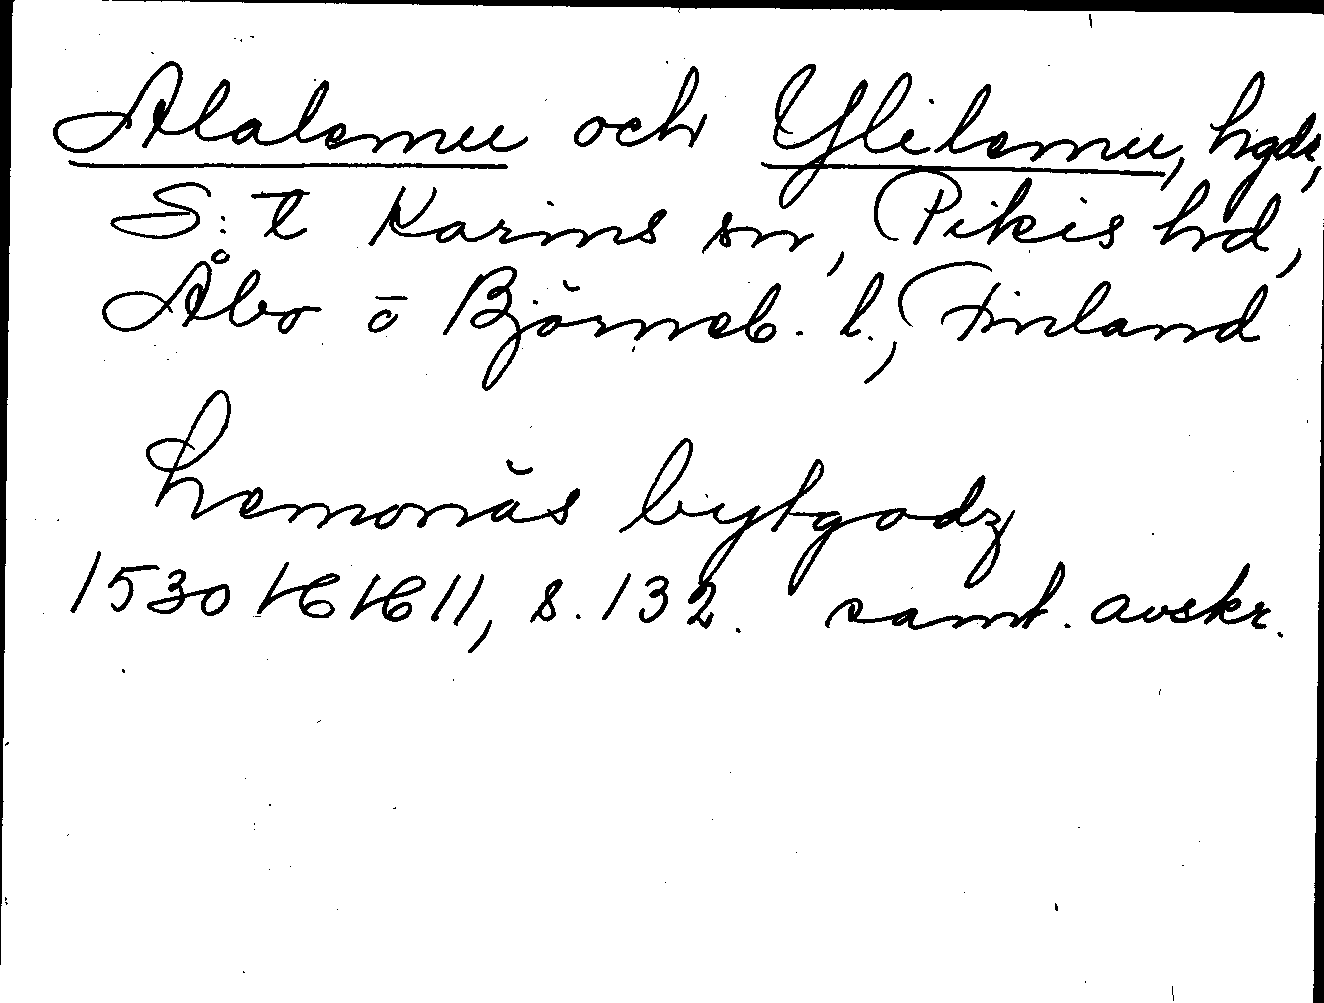 Alalemu och Ylilemu, hgdr,
S:t Karins sn, Pikis hd,
Åbo ō Björneb. l., Finland
Lemonäs bytgodz
1530 16/6 11, s. 132. samt. avskr.